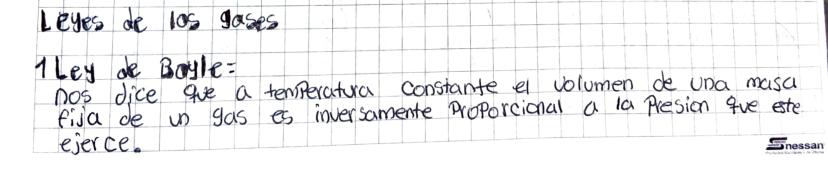 Leyes de los gases
1 Ley de Boyle=
nos dice que a temperatura constante el volumen de una masa
fija de un gas es inversamente proporcional a la Presion que este
ejerce.
Snessan